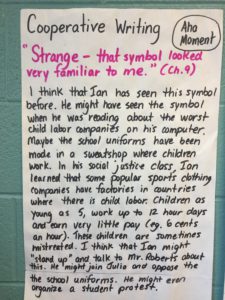 Cooperative Writing
Aha
Moment
"Strange - that symbol looked
very familiar to me." (Ch.9)
I think that Ian has seen this symbol
before. He might have seen the symbol
when he was reading about the worst
child labor companies on his computer.
Maybe the school uniforms have been
made in a sweatshop where children
work. In his social justice class, Ian
learned that some popular sports clothing
companies have factories in countries
where there is child labor. Children as
young as 5, work up to 12 hour days
and earn very little pay (eg. 6 cents
an hour). These children are sometimes
mistreated. I think that Ian might
"stand up" and talk to Mr. Roberts about
this. He might join Julia and oppose the
the school uniforms. He might even
organize a student protest.